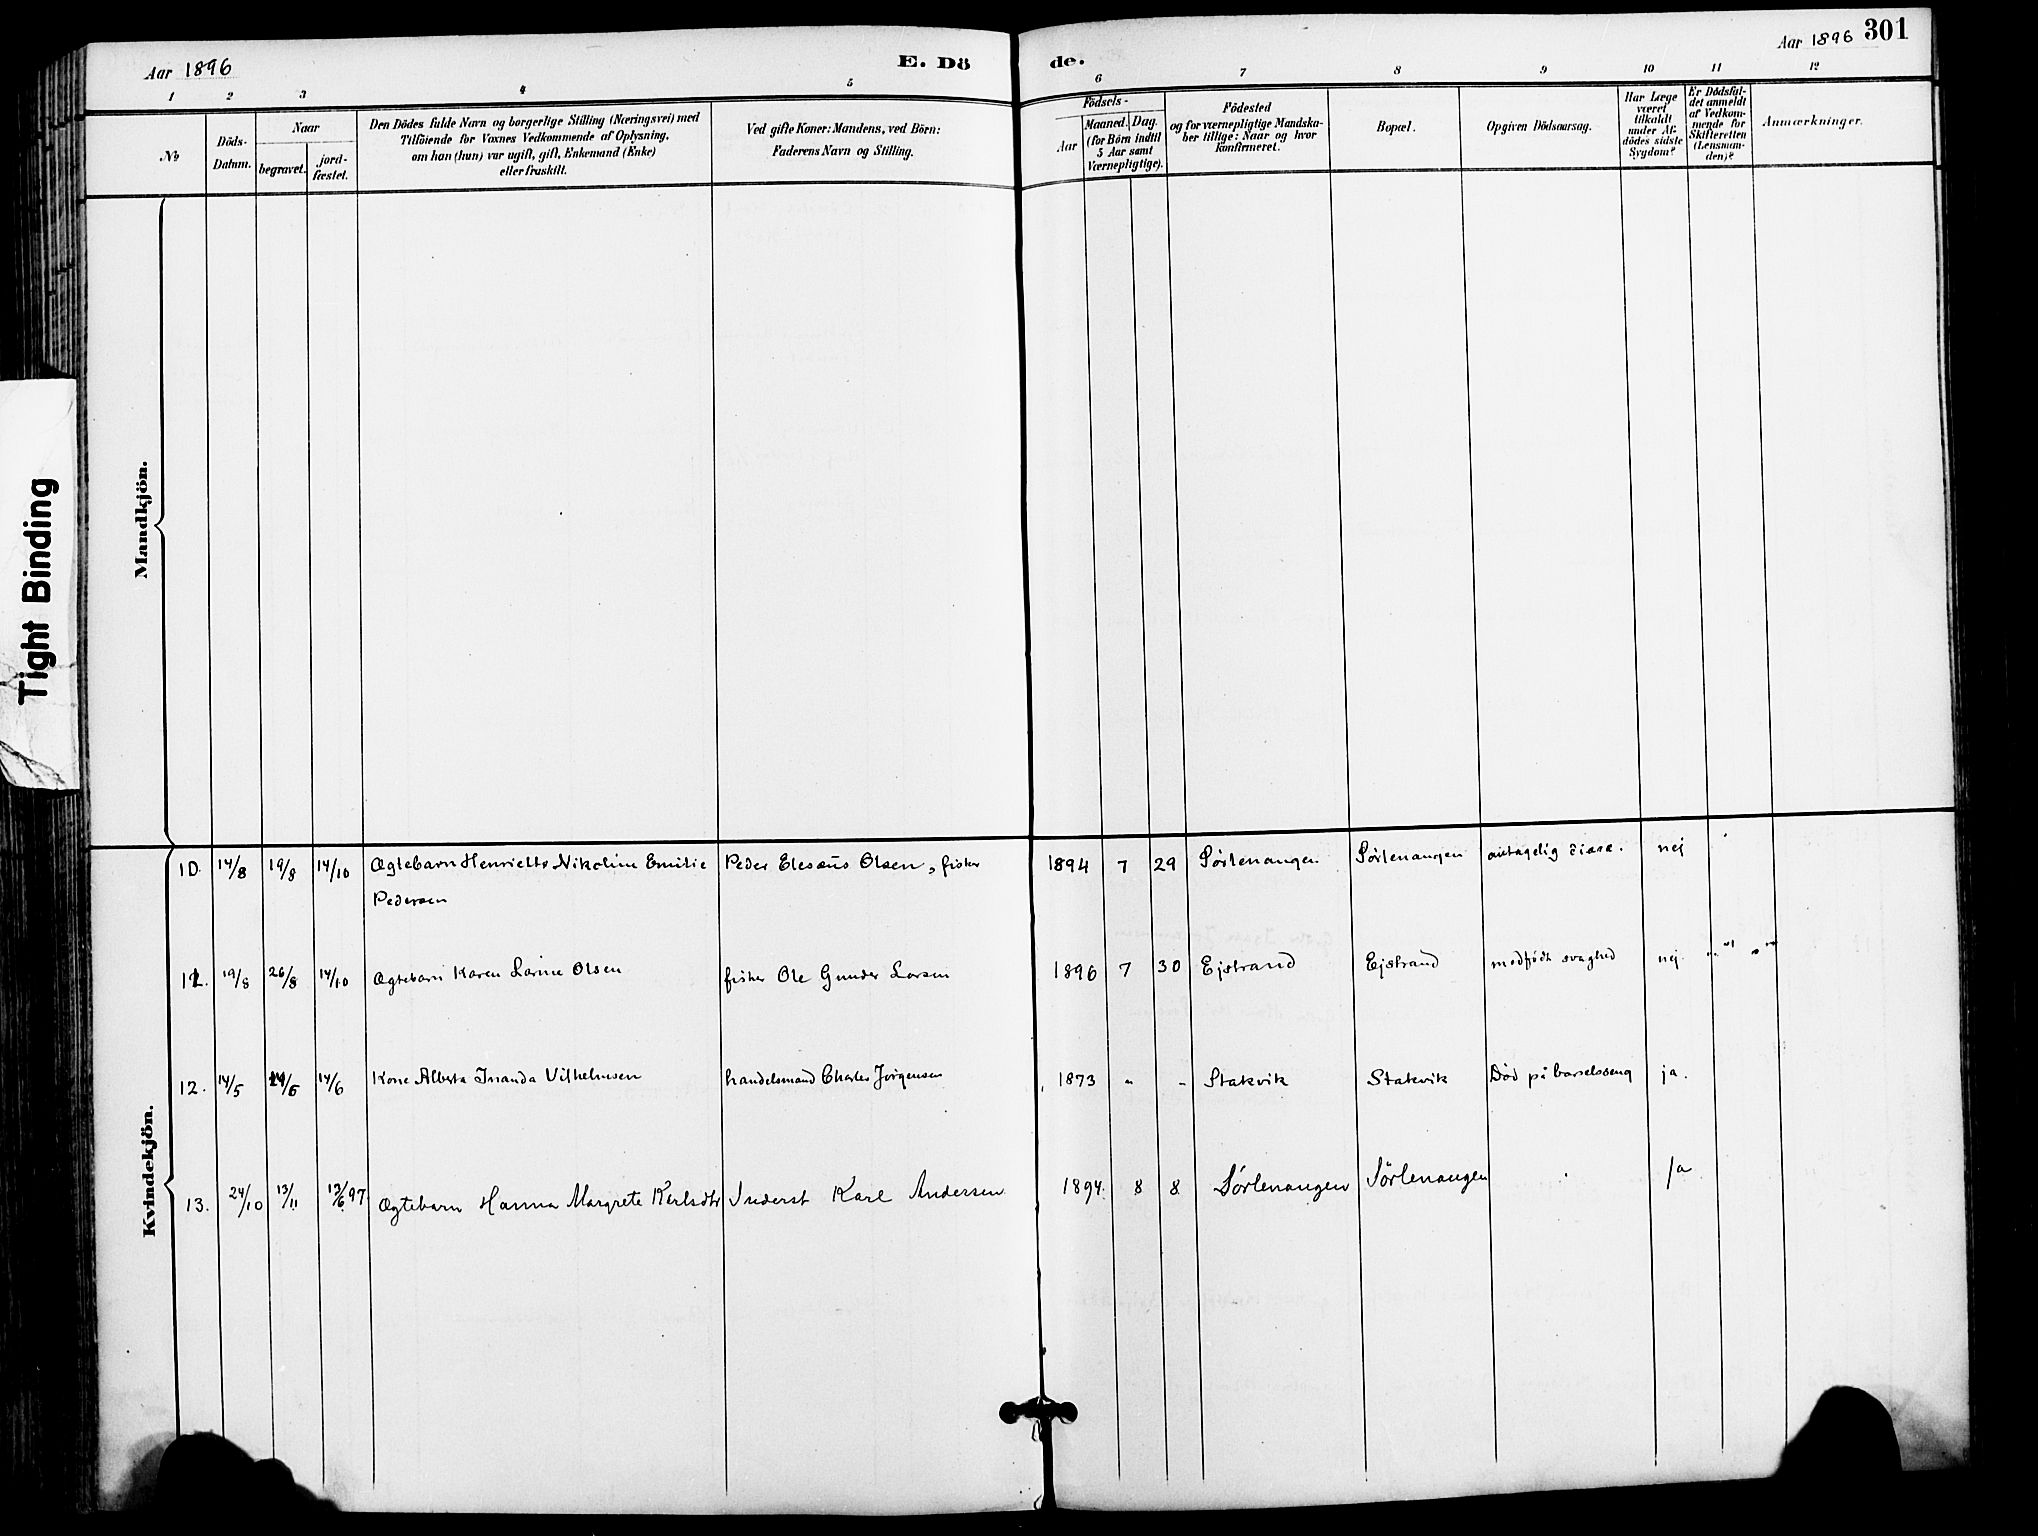 Aar 1896
E. Dö
de.
Aar 1896 301
1 2 3 4 5 6 7 8 9 10 11 12
No
Döds-Datum.
Naar
begravet.
jord-fæstet.
Den Dödes fulde Navn og borgerlige Stilling (Næringsvei) med
Tilföiende for Voxnes Vedkommende af Oplysning,
om han (hun) var ugift, gift, Enkemand (Enke)
eller fraskilt.
Ved gifte Koner: Mandens, ved Börn:
Faderens Navn og Stilling.
Födsels-
Aar
Maaned. Dag.
(for Börn indtil
5 Aar samt
Værnepligtige).
Födested
og for værnepligtige Mandska-
ber tillige: Naar og hvor
konfirmeret.
Bopæl.
Opgiven Dödsaarsag.
Har Læge
været
tilkaldt
under Af-
dödes sidste
Sygdom?
Er Dödsfal-
det anmeldt
af Vedkom-
mende for
Skifteretten
(Lensman-
den)?
Anmærkninger.
Tight Binding
Mandkjön.
Kvindekjön.
10. 14/8 19/8 14/10 Ægtebarn Henriette Nikoline Emilie Peder Elesæus Olsen, fisker 1894 7 29 Sörlenangen Sörlenangen antagelig nej
Pedersen
11. 19/8 26/8 14/10 Ægtebarn Karen Larine Olsen fisker Ole Gunder Larsen 1896 7 30 Ejstrand Ejstrand medfödt svaghed nej
12. 14/5 14/6 Kone Alberta Inanda Vilhelmsen handelsmand Charles Jörgensen 1873 " - Stakvik Stakvik Död på barselsseng ja.
13. 24/10 13/11 13/6 97 Ægtebarn Hanna Margrete Karlsdtr Inderst Karl Andersen 1894. 8 8 Sörlenangen Sörlenangen ja